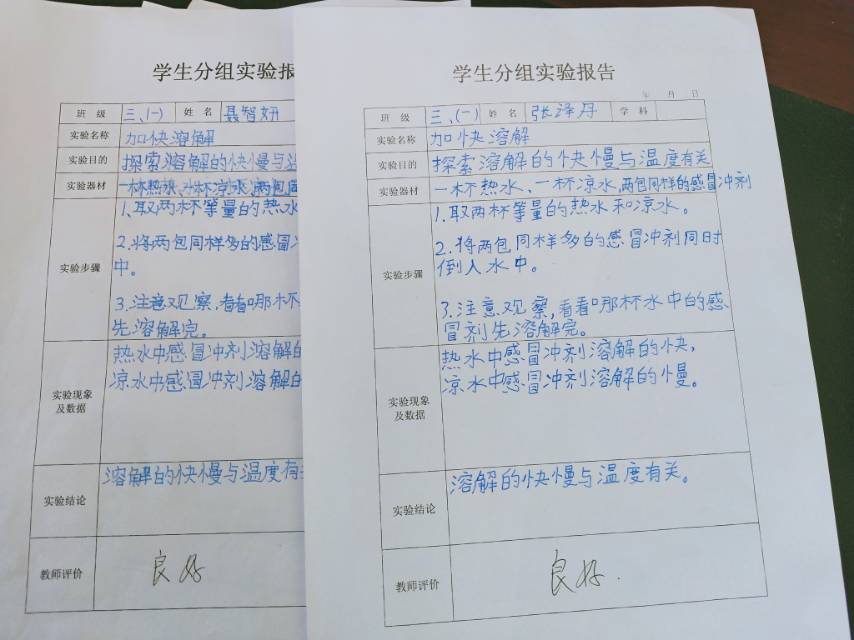 学生分组实验报
班 级 三、(一) 姓 名 聂智妍
实验名称 加快溶解
实验目的 探索溶解的快慢与
实验器材 一杯热水、一杯凉水、两包同
实验步骤
1.取两杯等量的热水
2.将两包同样多的感冒
中。
3.注意观察,看看哪杯
先溶解完。
实验现象
及数据
热水中感冒冲剂溶解的
凉水中感冒冲剂溶解的
实验结论
溶解的快慢与温度有
教师评价
良好
学生分组实验报告
年 月 日
班 级 三、(一) 姓 名 张泽丹 学 科
实验名称 加快溶解
实验目的 探索溶解的快慢与温度有关
实验器材 一杯热水、一杯凉水、两包同样的感冒冲剂
实验步骤
1.取两杯等量的热水和凉水。
2.将两包同样多的感冒冲剂同时
倒入水中。
3.注意观察,看看哪杯水中的感
冒剂先溶解完。
实验现象
及数据
热水中感冒冲剂溶解的快,
凉水中感冒冲剂溶解的慢。
实验结论
溶解的快慢与温度有关。
教师评价
良好.